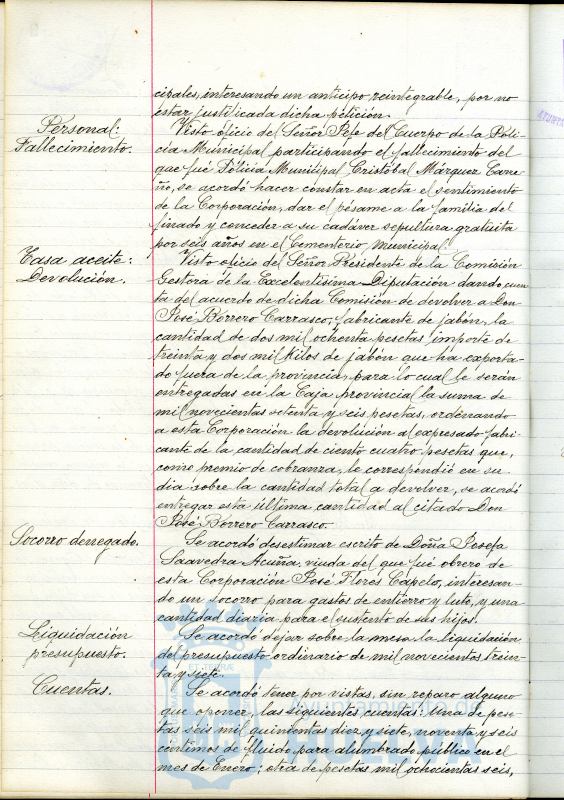 cipales, interesando un anticipo reintegrable, por no
estar justificada dicha petición.
Personal:
Fallecimiento.
Visto oficio del Señor Jefe del Cuerpo de la Poli-
cia Municipal participando el fallecimiento del
que fué Policia Municipal Cristóbal Márquez Cane-
ño, se acordó hacer constar en acta el sentimiento
de la Corporación, dar el pésame a la familia del
finado y conceder a su cadáver sepultura gratuita
por seis años en el Cementerio Municipal.
Tasa aceite:
Devolución.
Visto oficio del Señor Presidente de la Comisión
Gestora de la Excelentísima Diputación dando cuen-
ta del acuerdo de dicha Comisión de devolver a Don
José Borrero Carrasco, fabricante de jabón, la
cantidad de dos mil ochenta pesetas importe de
treinta y dos mil kilos de jabón que ha exporta-
do fuera de la provincia, para lo cual le serán
entregadas en la Caja provincial la suma de
mil novecientas setenta y seis pesetas, ordenando
a esta Corporación la devolución al expresado fabri-
cante de la cantidad de ciento cuatro pesetas que,
como premio de cobranza, le correspondió en su
dia sobre la cantidad total a devolver, se acordó
entregar esta última cantidad al citado Don
José Borrero Carrasco.
Socorro denegado.
Se acordó desestimar escrito de Doña Josefa
Saavedra Acuña, viuda del que fué obrero de
esta Corporación José Flores Capelo, interesan-
do un socorro para gastos de entierro y luto, y una
cantidad diaria para el sustento de sus hijos.
Liquidación
presupuesto.
Se acordó dejar sobre la mesa la liquidación
del presupuesto ordinario de mil novecientos trein-
ta y siete.
Cuentas.
Se acordó tener por vistas, sin reparo alguno
que oponer, las siguientes cuentas: Una de pese-
tas seis mil quinientas diez y siete, noventa y seis
céntimos de fluido para alumbrado público en el
mes de Enero; otra de pesetas mil ochocientas seis,
Ayuntamiento de
HUELVA